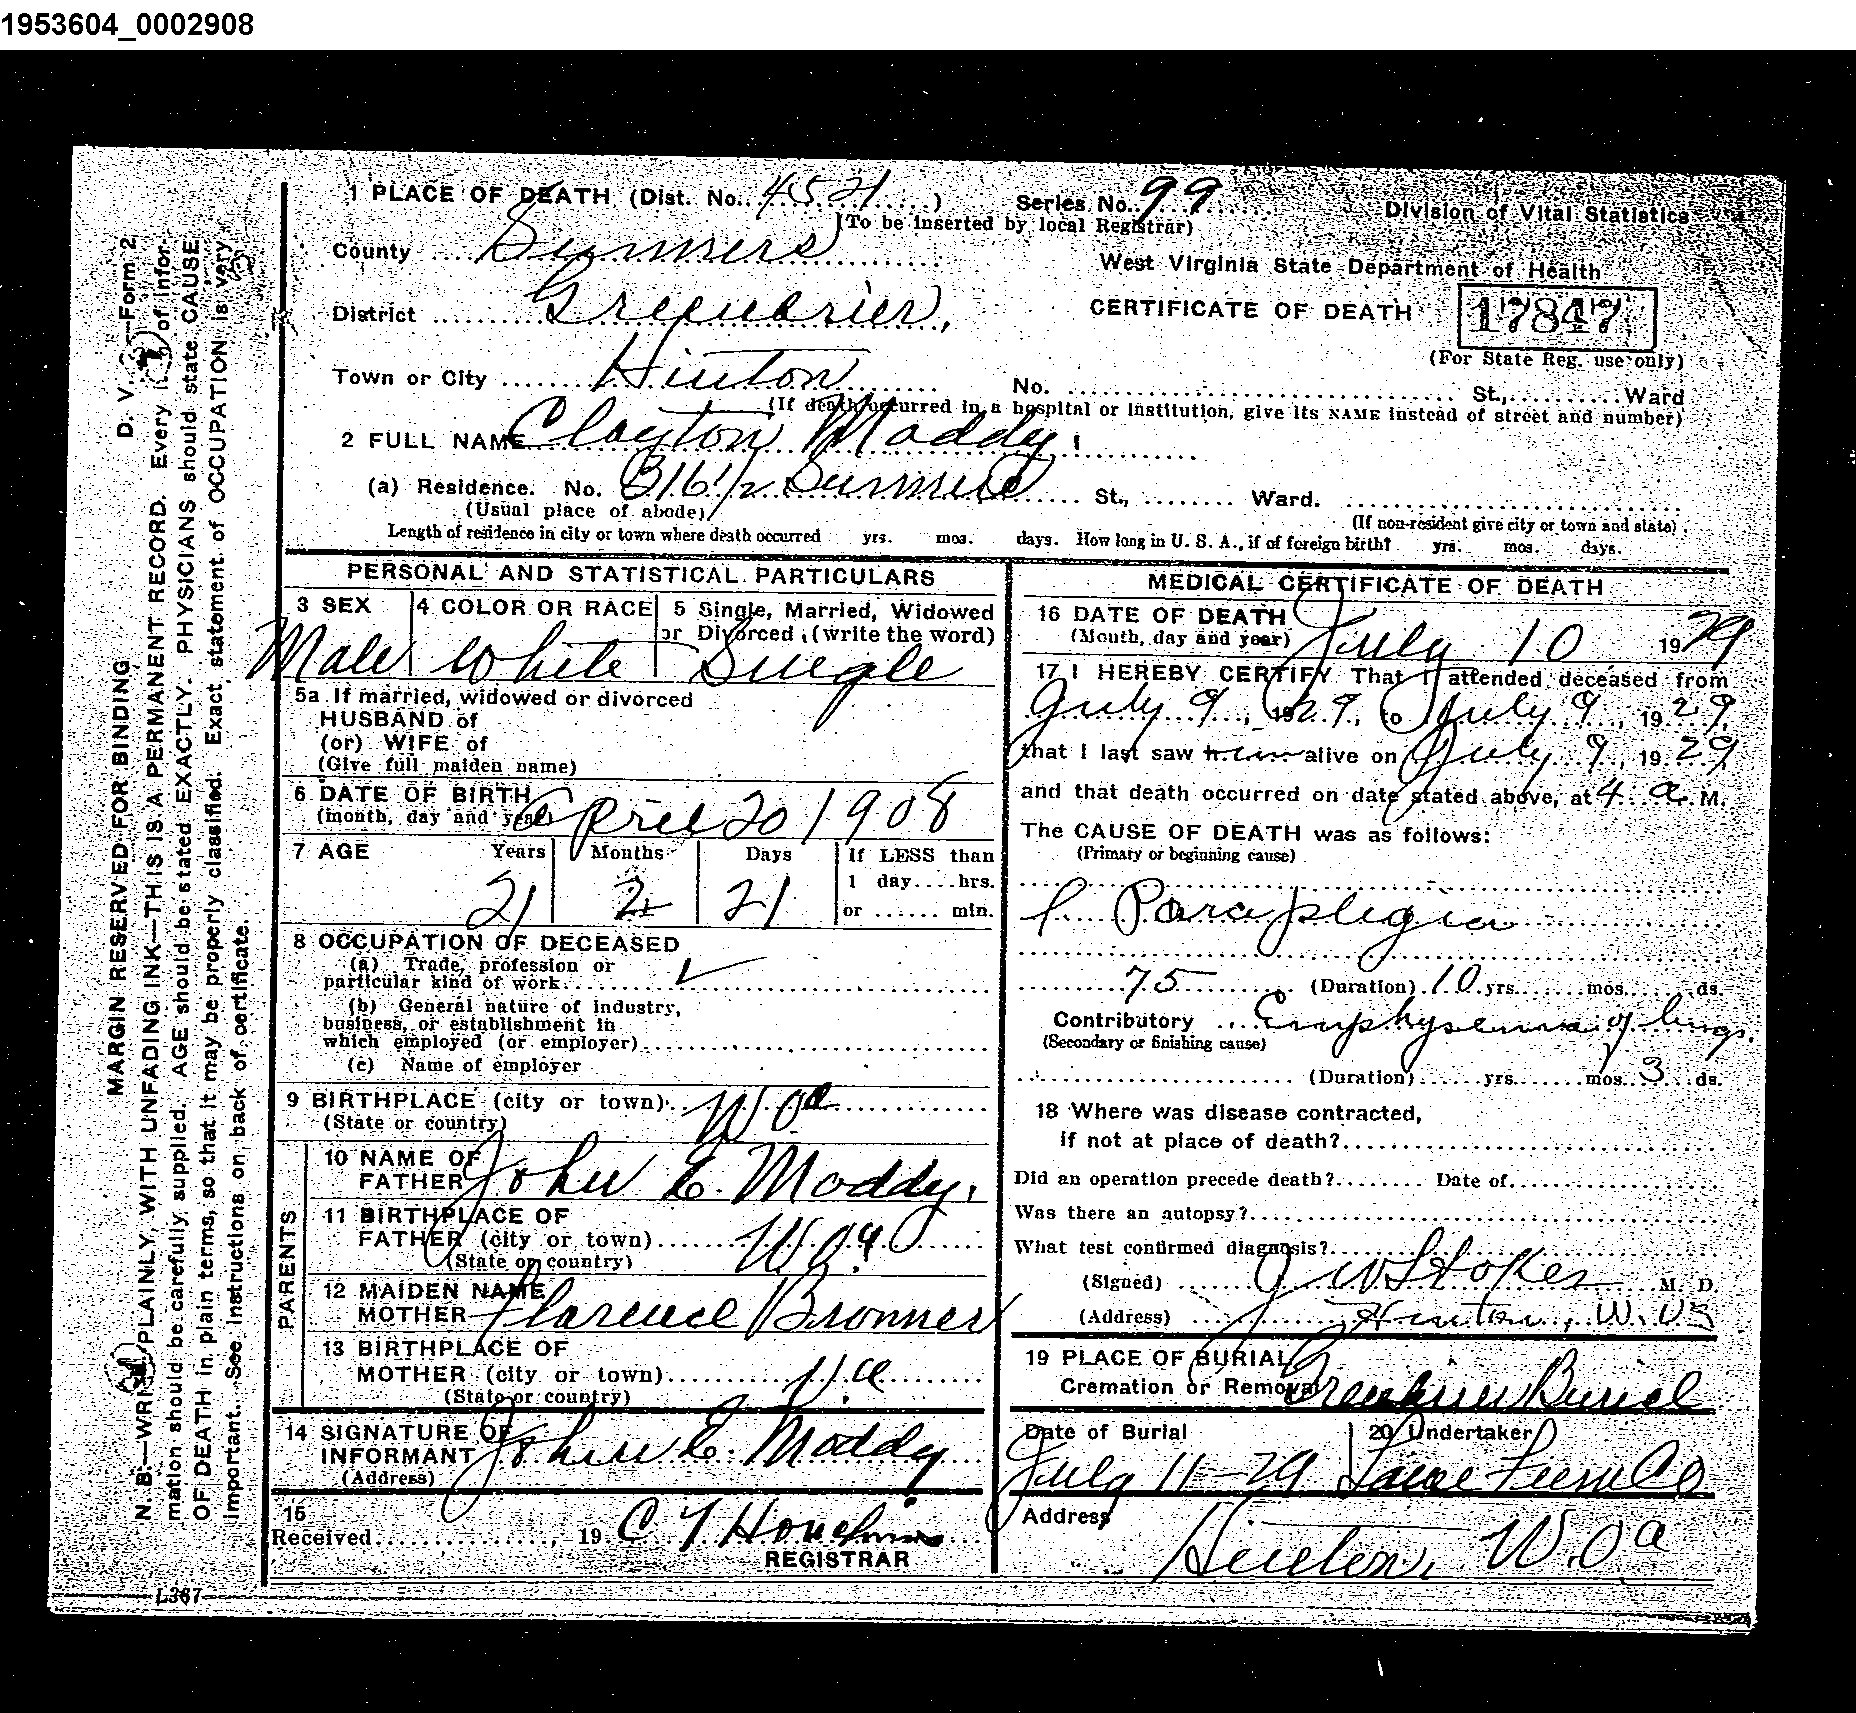 1953604_0002908
1 PLACE OF DEATH (Dist. No. 4521) Series No. 99 Division of Vital Statistics
(To be inserted by local Registrar)
County Summers
West Virginia State Department of Health
District Greenbrier, CERTIFICATE OF DEATH 17847
(For State Reg. use only)
Town or City Hinton No. St., Ward
(If death occurred in a hospital or institution, give its NAME instead of street and number)
2 FULL NAME Clayton Maddy
(a) Residence. No. 316 1/2 Summers St., Ward.
(Usual place of abode) (If non-resident give city or town and state)
Length of residence in city or town where death occurred yrs. mos. days. How long in U. S. A., if of foreign birth? yrs. mos. days.
PERSONAL AND STATISTICAL PARTICULARS
3 SEX 4 COLOR OR RACE 5 Single, Married, Widowed
or Divorced (write the word)
Male White Single
5a If married, widowed or divorced
HUSBAND of
(or) WIFE of
(Give full maiden name)
6 DATE OF BIRTH
(month, day and year) April 20 1908
7 AGE Years Months Days If LESS than
1 day.... hrs.
21 2 21 or ...... min.
8 OCCUPATION OF DECEASED
(a) Trade, profession or
particular kind of work
(b) General nature of industry,
business, or establishment in
which employed (or employer)
(c) Name of employer
9 BIRTHPLACE (city or town) W Va
(State or country)
PARENTS
10 NAME OF
FATHER John E. Maddy,
11 BIRTHPLACE OF
FATHER (city or town) W Va
(State or country)
12 MAIDEN NAME
MOTHER Florence Bronner
13 BIRTHPLACE OF
MOTHER (city or town) Va
(State or country)
14 SIGNATURE OF
INFORMANT John E. Maddy
(Address)
15
Received , 19 C T Houchins
REGISTRAR
MEDICAL CERTIFICATE OF DEATH
16 DATE OF DEATH
(Month, day and year) July 10 1929
17 I HEREBY CERTIFY That I attended deceased from
July 9, 1929, to July 9, 1929,
that I last saw him alive on July 9, 1929
and that death occurred on date stated above, at 4 a M.
The CAUSE OF DEATH was as follows:
(Primary or beginning cause)
Paraplegia
75 (Duration) 10 yrs. mos. ds.
Contributory Emphysema of lungs.
(Secondary or finishing cause)
(Duration) yrs. mos. 3 ds.
18 Where was disease contracted,
if not at place of death?
Did an operation precede death? Date of
Was there an autopsy?
What test confirmed diagnosis?
(Signed) J W Stokes M. D
(Address) Hinton, W. Va
19 PLACE OF BURIAL
Cremation or Removal Greenbrier Burial
Date of Burial 20 Undertaker
July 11-29
Address
Hinton, W. Va
MARGIN RESERVED FOR BINDING D. V. —Form 2
N. B.—WRITE PLAINLY, WITH UNFADING INK—THIS IS A PERMANENT RECORD. Every of infor-
mation should be carefully supplied. AGE should be stated EXACTLY. PHYSICIANS should state CAUSE
OF DEATH in plain terms, so that it may be properly classified. Exact statement of OCCUPATION is very
important. See instructions on back of certificate.
L367